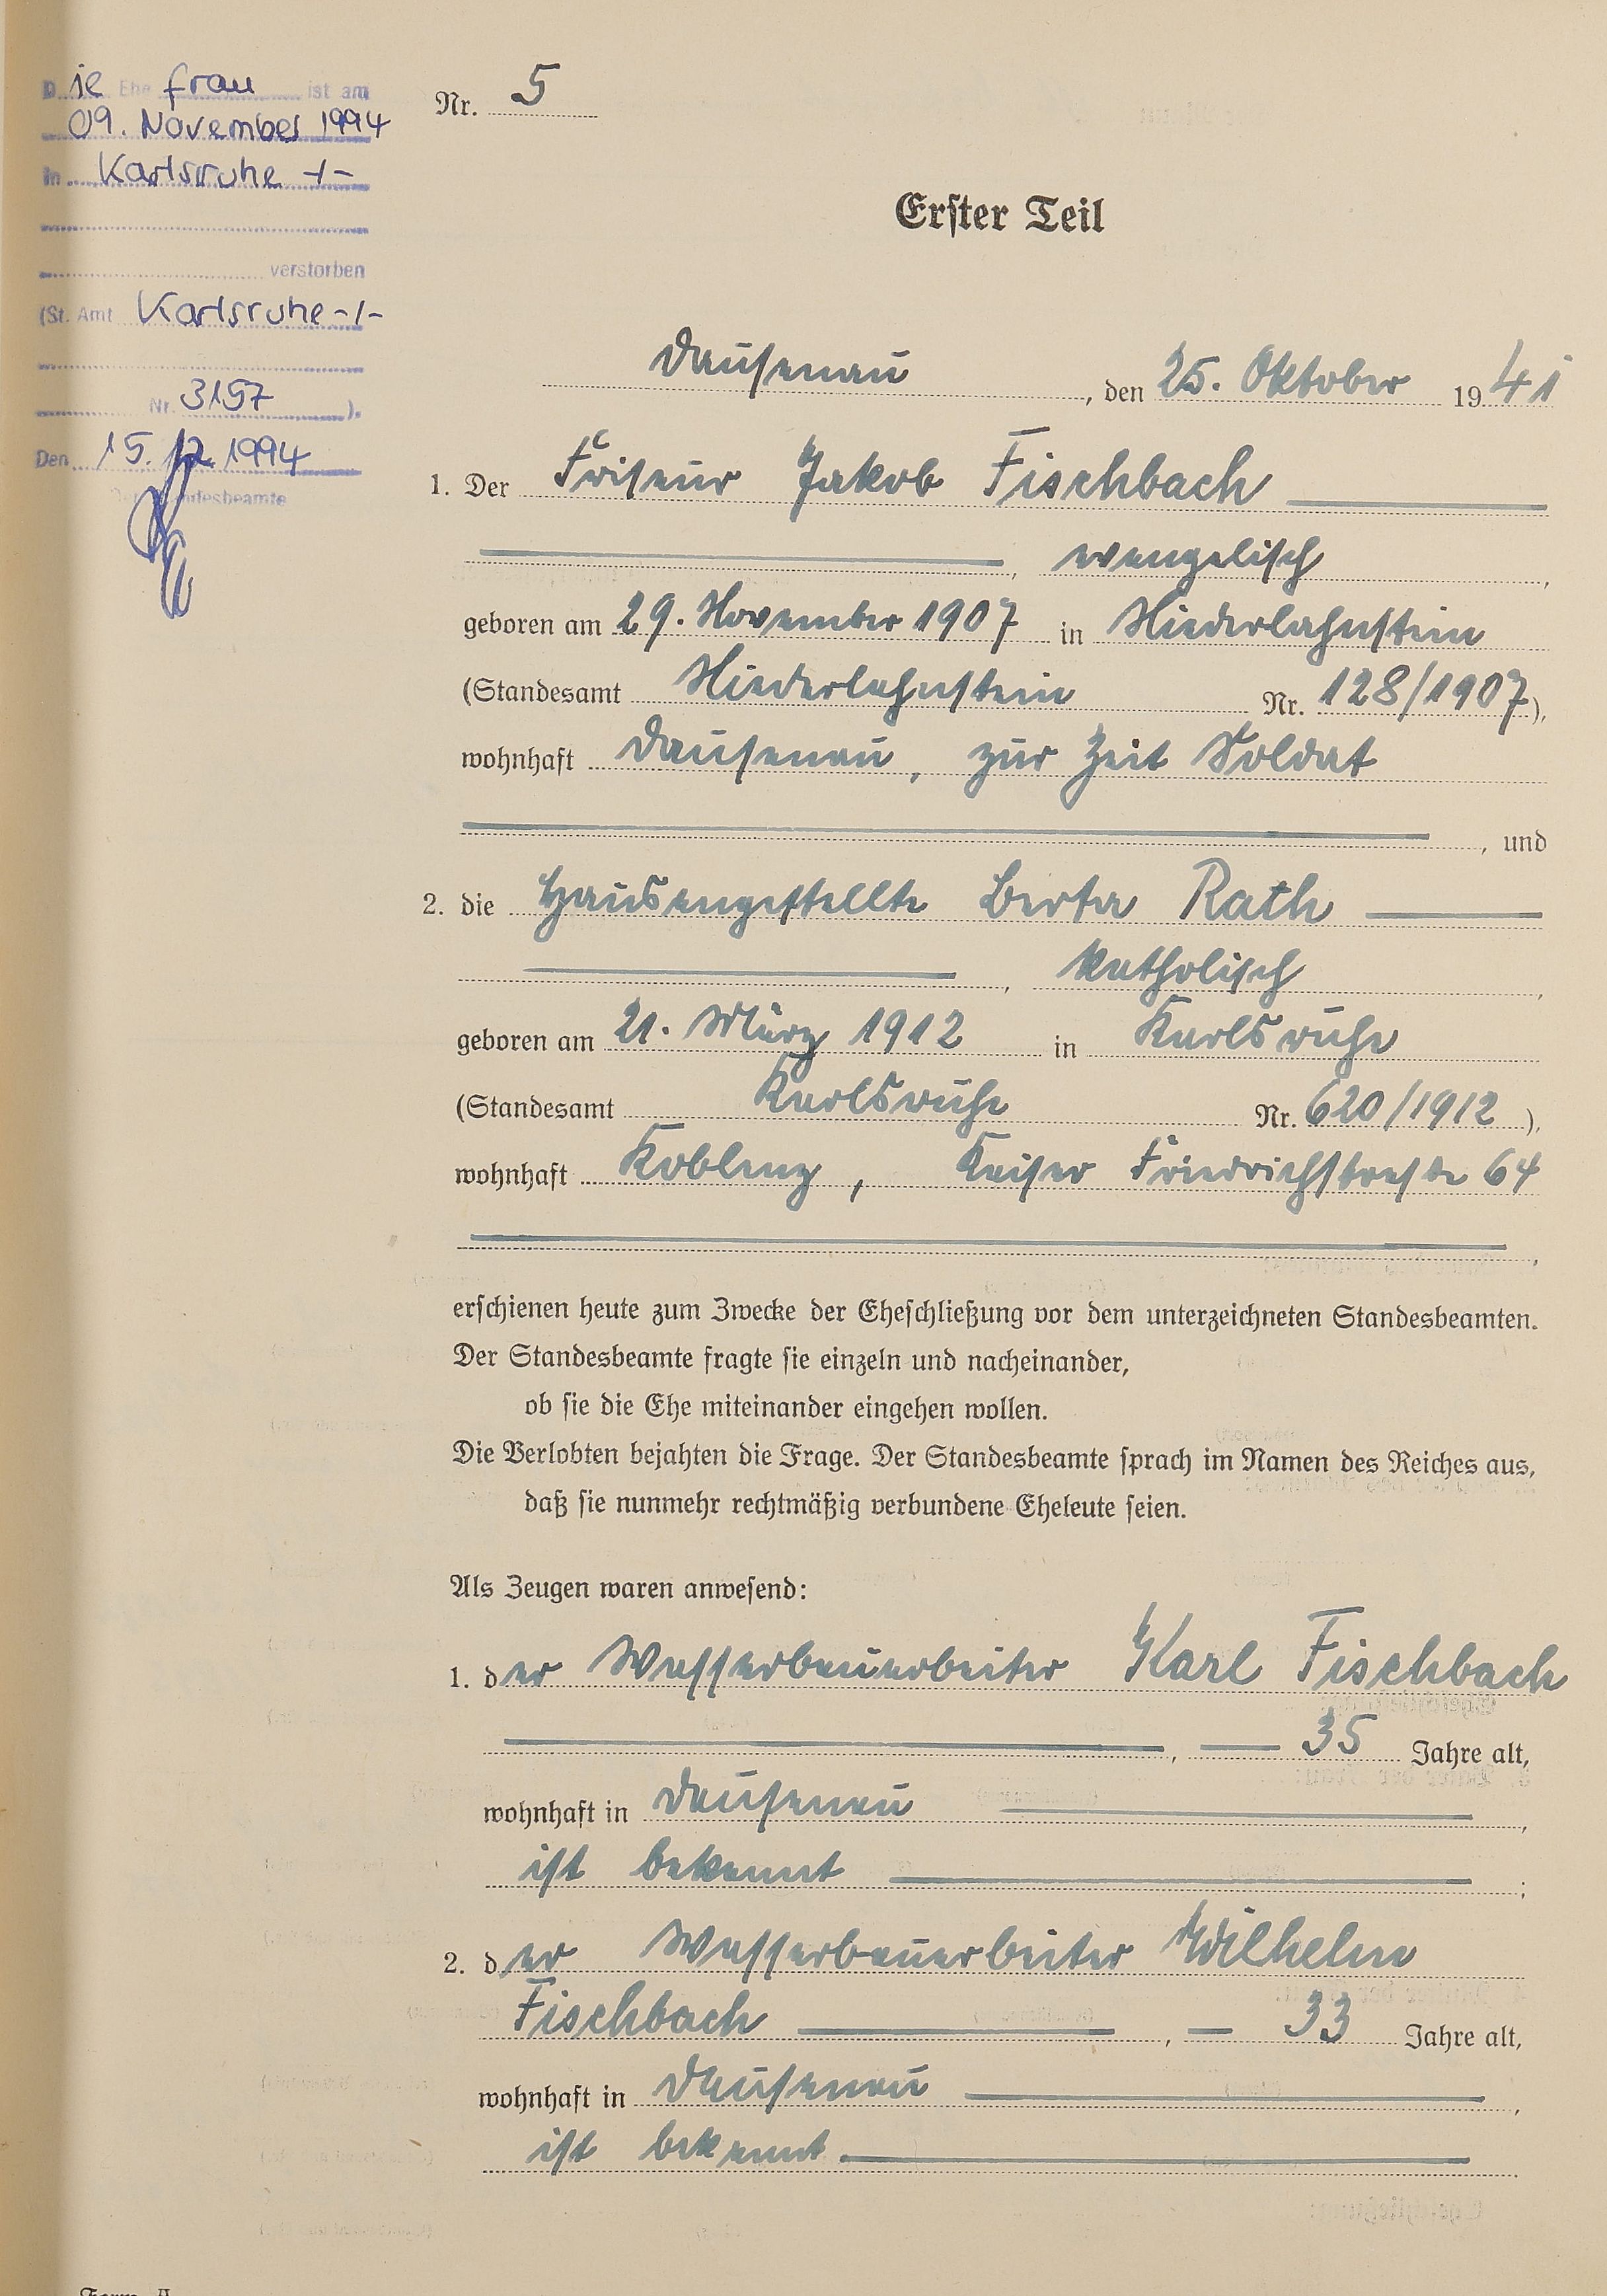 Die Ehefrau ist am
09. November 1994
in Karlsruhe -/-
verstorben
(St. Amt Karlsruhe -/-
Nr. 3157 ).
Den 15. 12. 1994
Der Standesbeamte
Nr. 5
Erster Teil
Dausenau, den 25. Oktober 1941
1. Der Friseur Jakob Fischbach
, evangelisch,
geboren am 29. November 1907 in Niederlahnstein
(Standesamt Niederlahnstein Nr. 128/1907),
wohnhaft Dausenau, zur Zeit Soldat
, und
2. die Hausangestellte Berta Rath
, katholisch,
geboren am 21. März 1912 in Karlsruhe
(Standesamt Karlsruhe Nr. 620/1912),
wohnhaft Koblenz, Kaiser Friedrichstraße 64
,
erschienen heute zum Zwecke der Eheschließung vor dem unterzeichneten Standesbeamten.
Der Standesbeamte fragte sie einzeln und nacheinander,
ob sie die Ehe miteinander eingehen wollen.
Die Verlobten bejahten die Frage. Der Standesbeamte sprach im Namen des Reiches aus,
daß sie nunmehr rechtmäßig verbundene Eheleute seien.
Als Zeugen waren anwesend:
1. der Wasserbauarbeiter Karl Fischbach
, 35 Jahre alt,
wohnhaft in Dausenau,
ist bekannt;
2. der Wasserbauarbeiter Wilhelm
Fischbach, 33 Jahre alt,
wohnhaft in Dausenau,
ist bekannt.